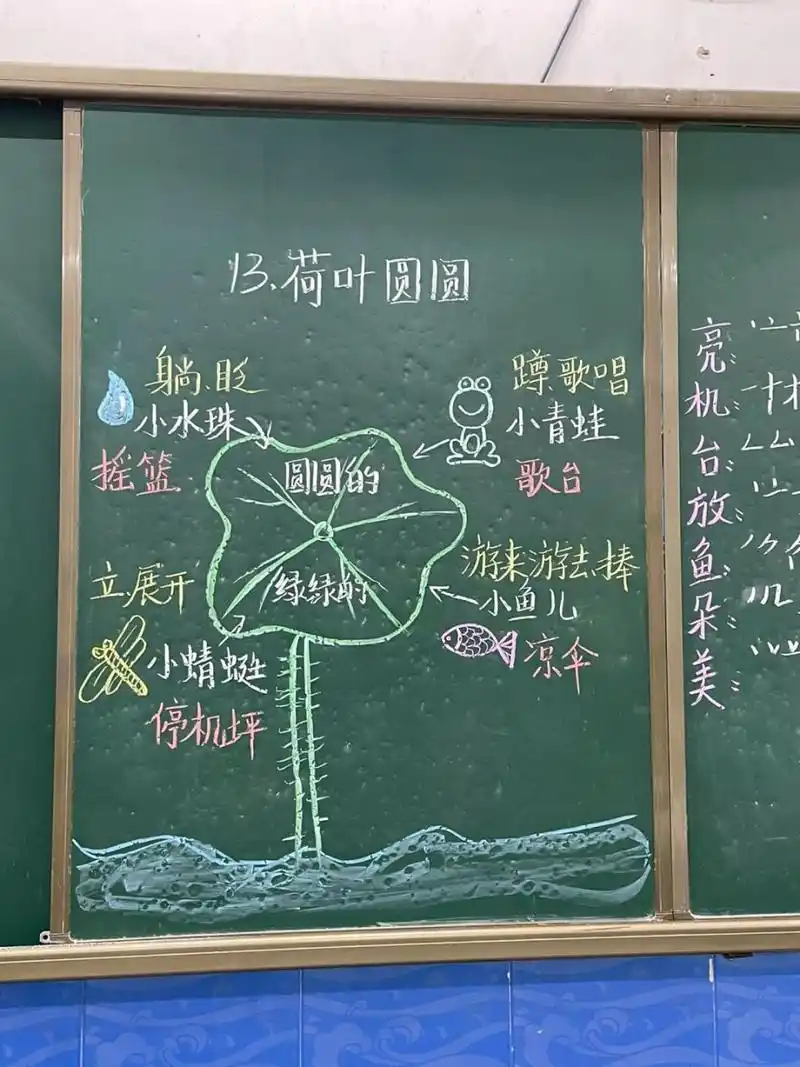 13.荷叶圆圆
躺、眨
小水珠
摇篮
蹲、歌唱
小青蛙
歌台
圆圆的
绿绿的
立、展开
小蜻蜓
停机坪
游来游去、捧
小鱼儿
凉伞
亮:
机:
台:
放:
鱼:
朵:
美: